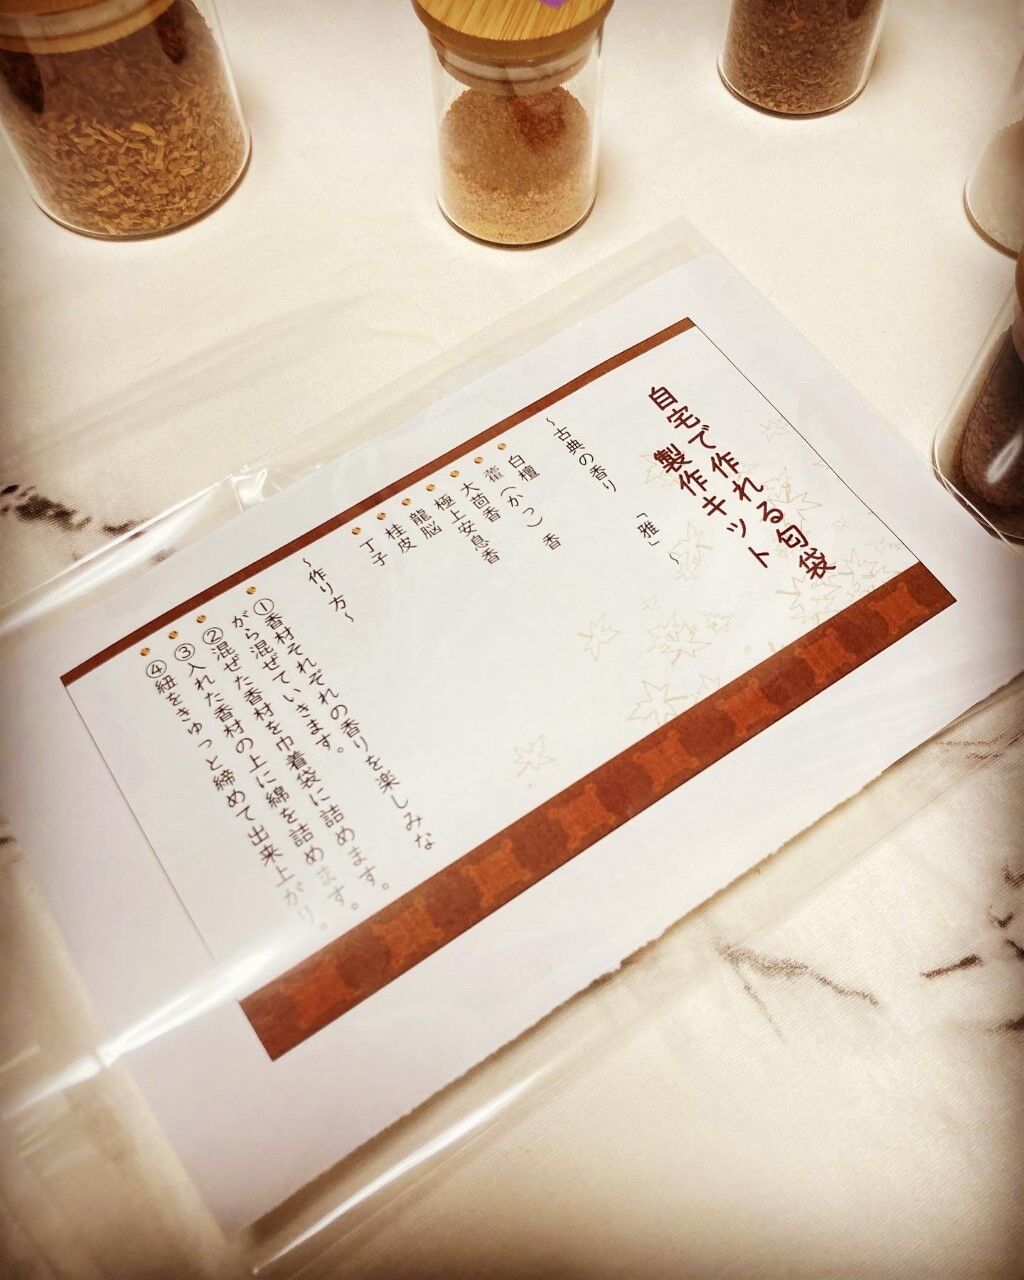 自宅で作れる匂袋
製作キット
～古典の香り
「雅」～
白檀
藿（かっ）香
大茴香
極上安息香
龍脳
桂皮
丁子
～作り方～
①香材それぞれの香りを楽しみな
がら混ぜていきます。
②混ぜた香材を巾着袋に詰めます。
③入れた香材の上に綿を詰めます。
④紐をきゅっと締めて出来上がり。